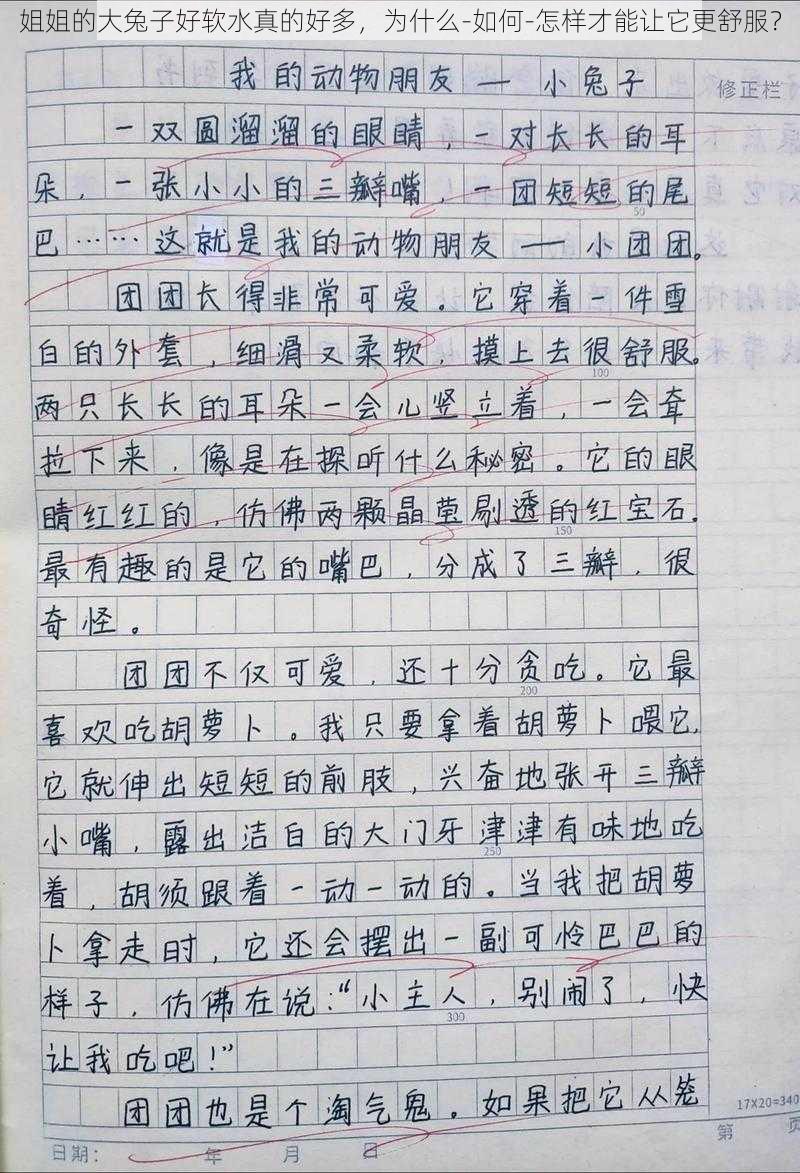 姐姐的大兔子好软水真的好多，为什么-如何-怎样才能让它更舒服？
我的动物朋友 — 小兔子
修正栏
一双圆溜溜的眼睛，一对长长的耳
朵，一张小小的三瓣嘴，一团短短的尾
50
巴……这就是我的动物朋友 — 小团团。
团团长得非常可爱。它穿着一件雪
白的外套，细滑又柔软，摸上去很舒服。
100
两只长长的耳朵一会儿竖立着，一会耷
拉下来，像是在探听什么秘密。它的眼
睛红红的，仿佛两颗晶莹剔透的红宝石。
150
最有趣的是它的嘴巴，分成了三瓣，很
奇怪。
团团不仅可爱，还十分贪吃。它最
200
喜欢吃胡萝卜。我只要拿着胡萝卜喂它，
它就伸出短短的前肢，兴奋地张开三瓣
小嘴，露出洁白的大门牙津津有味地吃
250
着，胡须跟着一动一动的。当我把胡萝
卜拿走时，它还会摆出一副可怜巴巴的
样子，仿佛在说：“小主人，别闹了，快
300
让我吃吧！”
团团也是个淘气鬼。如果把它从笼
17X20=340
日期： 年 月 日
第 页